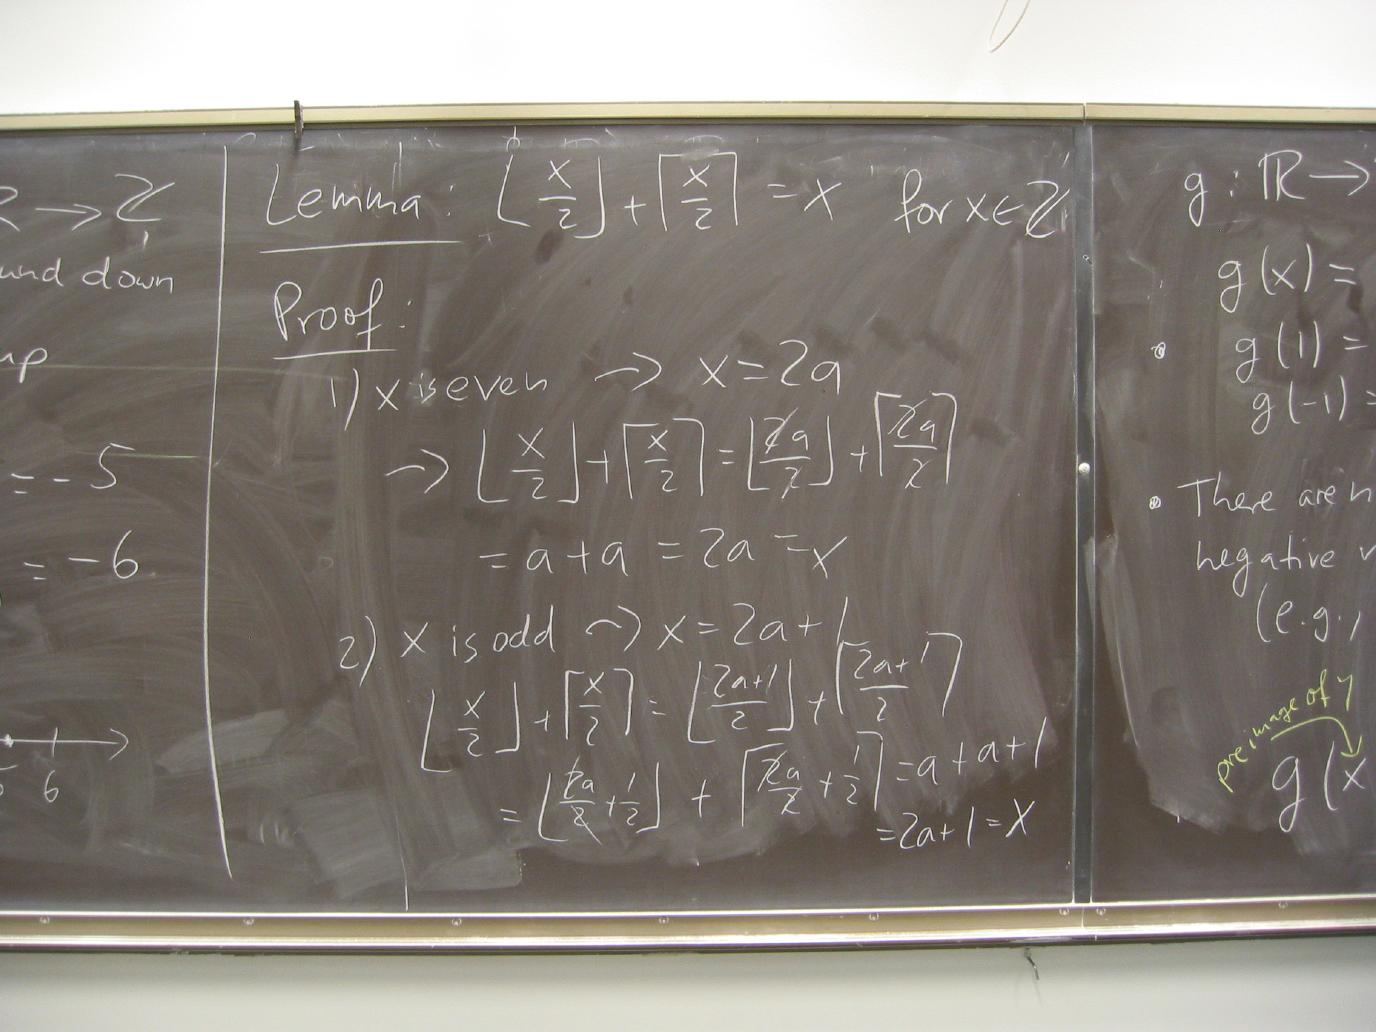 R → ℤ
und down
up
= -5
= -6
6
Lemma: ⌊x/2⌋ + ⌈x/2⌉ = x for x ∈ ℤ
Proof:
1) x is even → x = 2a
→ ⌊x/2⌋ + ⌈x/2⌉ = ⌊2a/2⌋ + ⌈2a/2⌉
= a + a = 2a = x
2) x is odd → x = 2a + 1
⌊x/2⌋ + ⌈x/2⌉ = ⌊(2a+1)/2⌋ + ⌈(2a+1)/2⌉
= ⌊2a/2 + 1/2⌋ + ⌈2a/2 + 1/2⌉ = a + a + 1
= 2a + 1 = x
g : ℝ →
g(x) =
• g(1) =
g(-1) =
• There are n
negative
(e.g.,
preimage of y
g(x